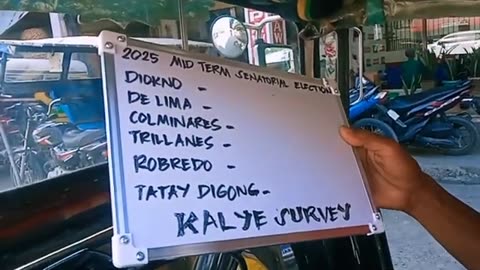 2025 MID TERM SENATORIAL ELECTION
DIOKNO -
DE LIMA -
COLMINARES -
TRILLANES -
ROBREDO -
TATAY DIGONG -
KALYE SURVEY